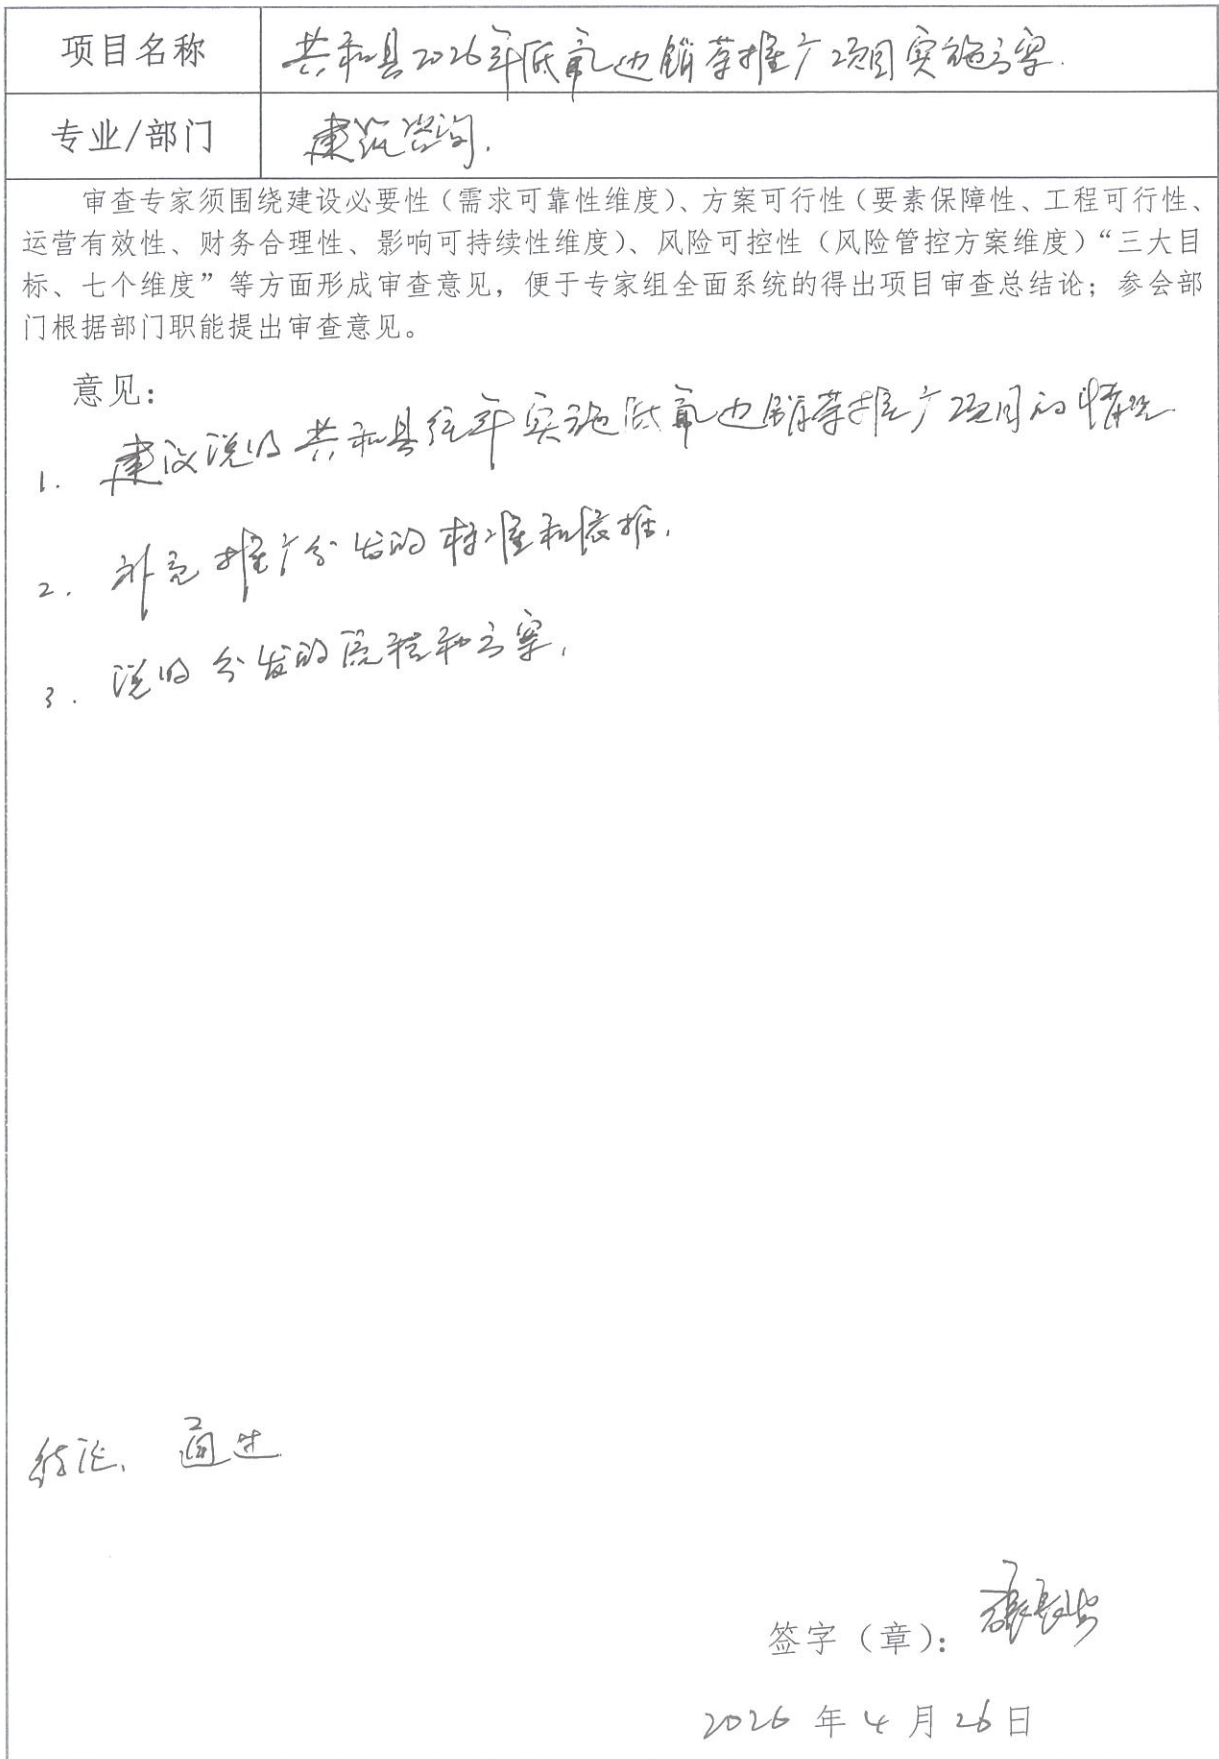 项目名称 共和县2026年低氟边销茶推广项目实施方案.
专业/部门 建筑咨询.
审查专家须围绕建设必要性（需求可靠性维度）、方案可行性（要素保障性、工程可行性、
运营有效性、财务合理性、影响可持续性维度）、风险可控性（风险管控方案维度）“三大目
标、七个维度”等方面形成审查意见，便于专家组全面系统的得出项目审查总结论；参会部
门根据部门职能提出审查意见。
意见：
1. 建议说明共和县往年实施低氟边销茶推广项目的情况.
2. 补充推广分发的标准和依据.
3. 说明分发的流程和方案.
结论、通过
签字（章）：
2026 年 4 月 26 日